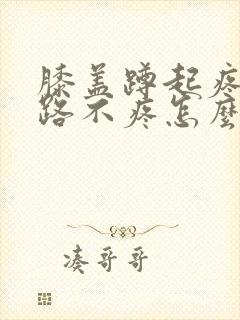 膝盖蹲起疼
路不疼怎麽
凑哥哥